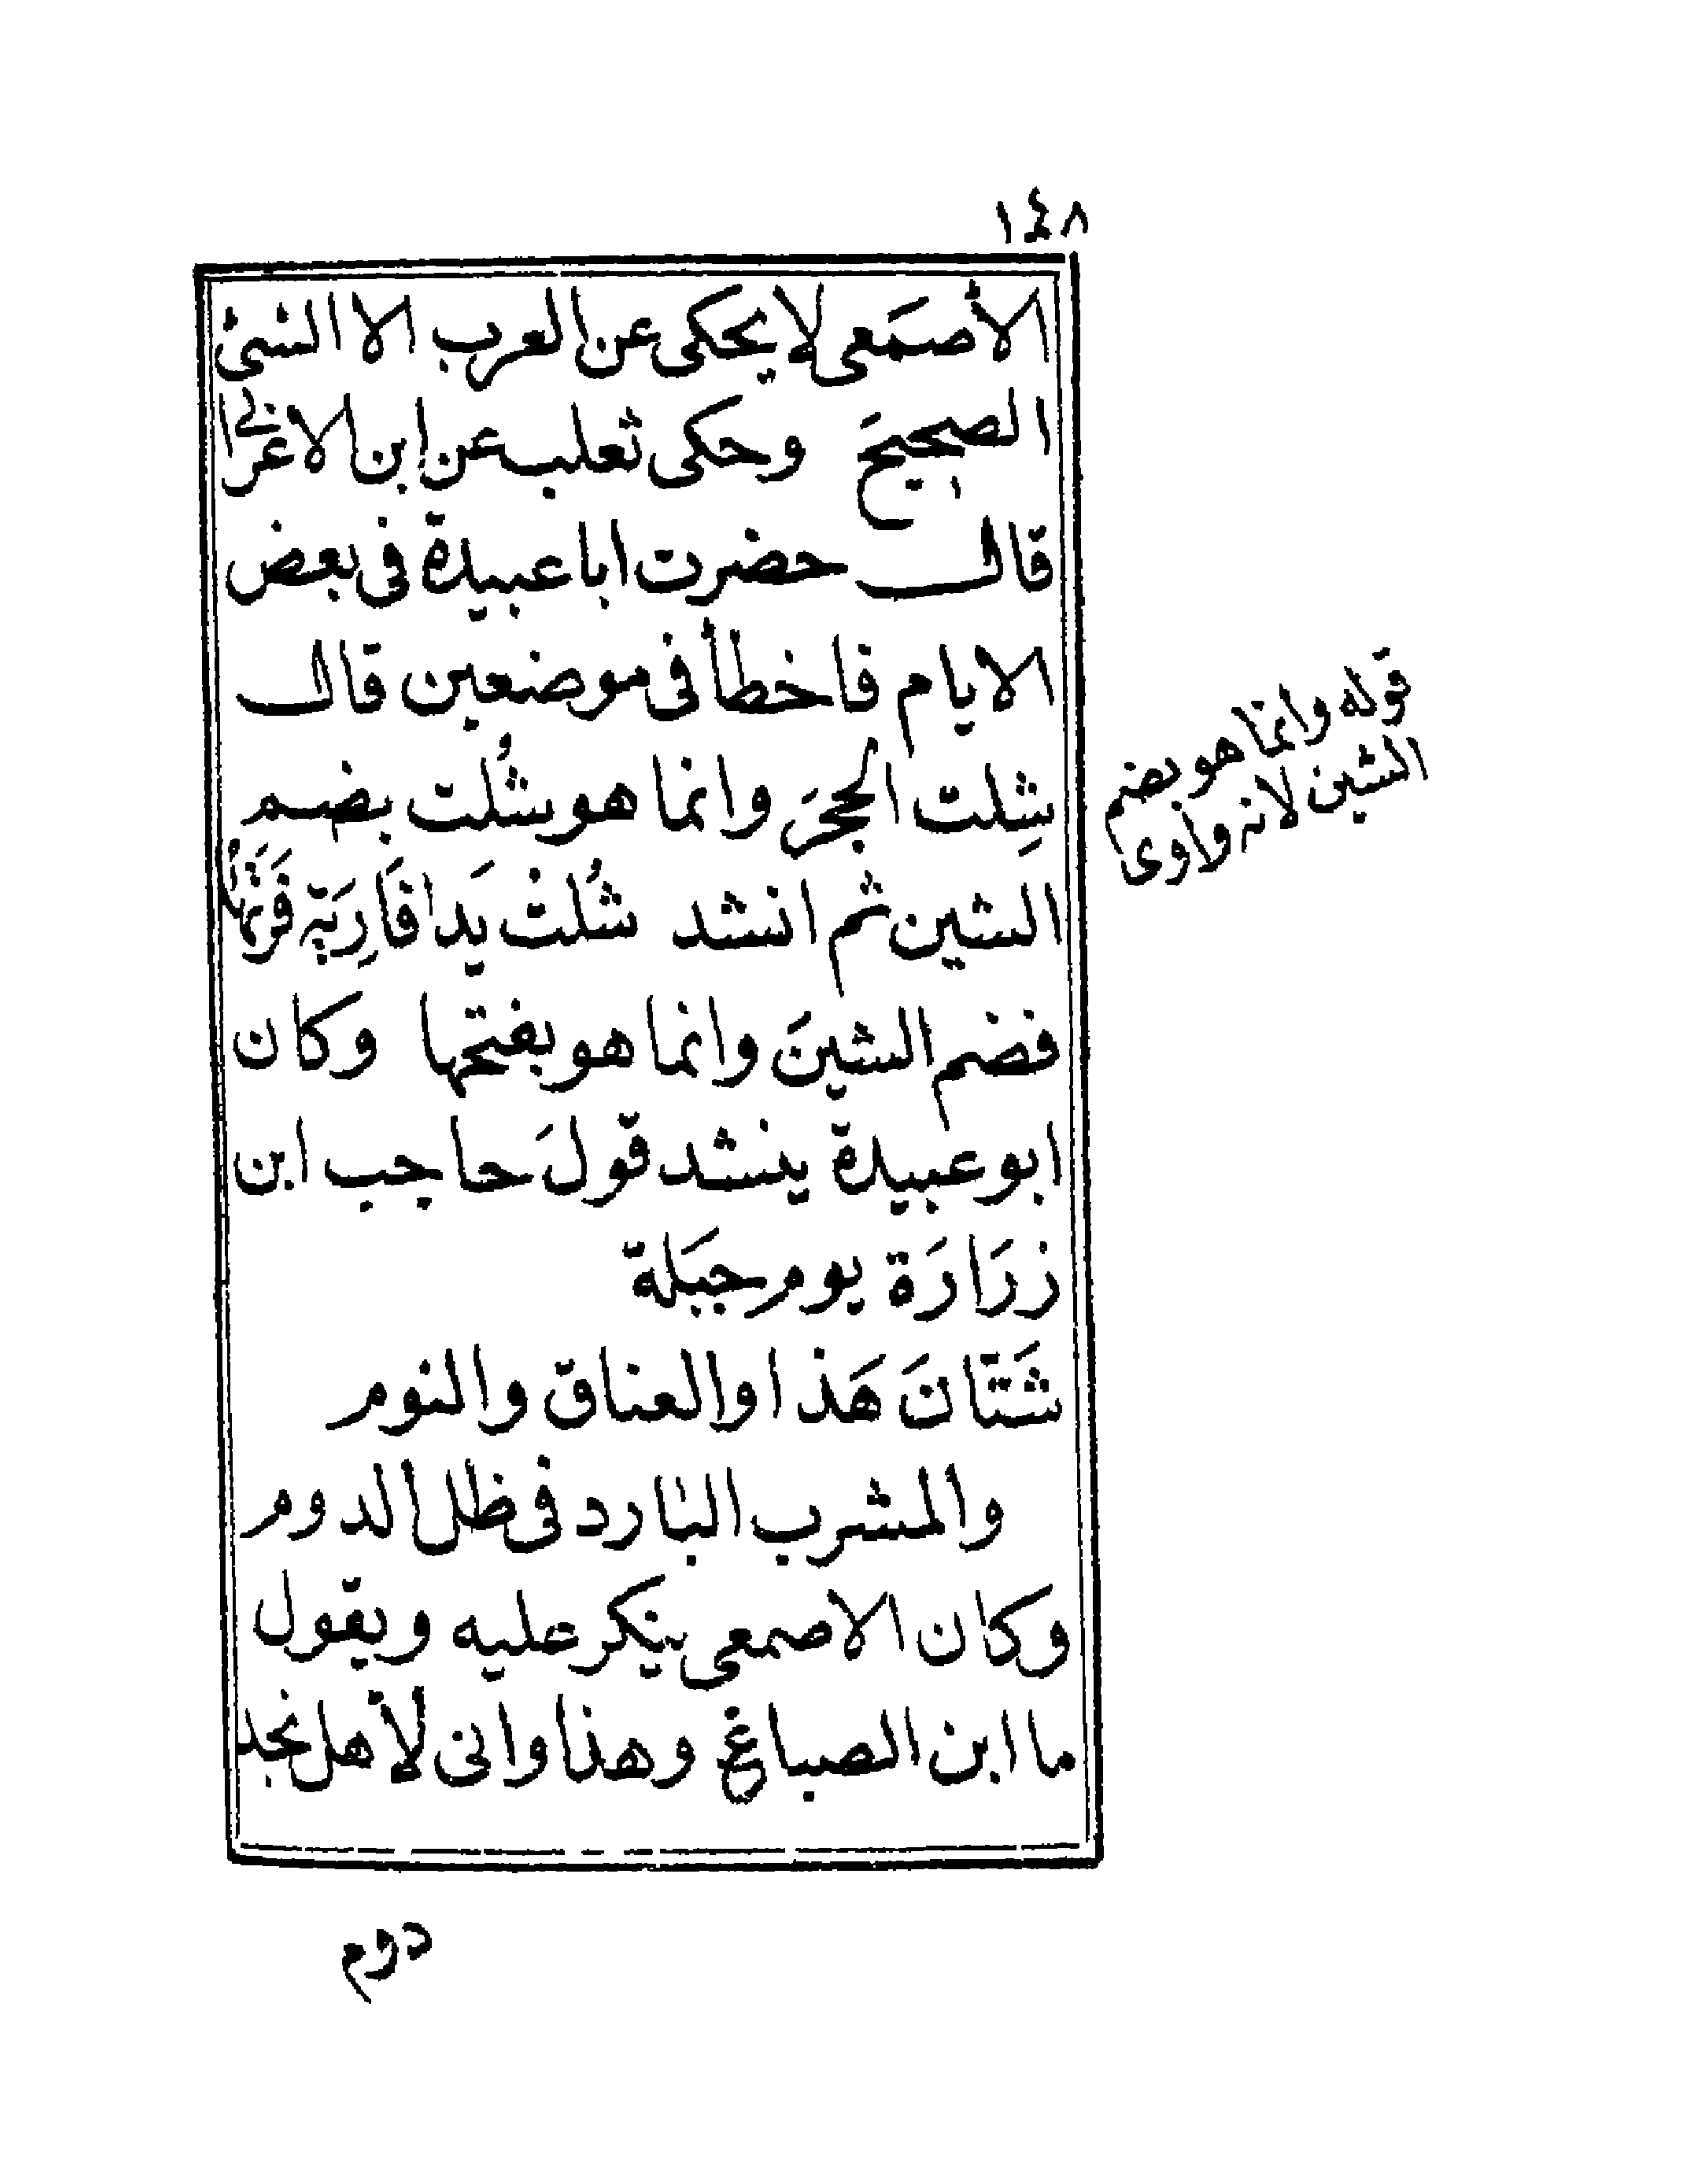 ١٤٨
الأصمَعى لا يحكى عن العرب الا الشئ
الصحيحَ وحكى ثعلب عن ابن الاعرابى
قال حضرت ابا عبيدة فى بعض
الايام فاخطأ فى موضعين قال
شِلت الحجرَ وانما هو شُلت بضم
الشين ثم انشد شُلتْ يَدا فَارِيَةٍ فَرَتْهَا
فضم الشينَ وانما هو بفتحها وكان
ابو عبيدة ينشد قولَ حاجب ابن
زرَارَة يوم جبَلة
شَتَّانَ هَذا والعناق والنوم
والمشرب البارد فى ظل الدوم
وكان الاصمعى ينكر عليه ويقول
ما ابن الصباغ وهذا وانى لأهل نجد
دوم
قوله وانما هو بضم
الشين لانه واوى